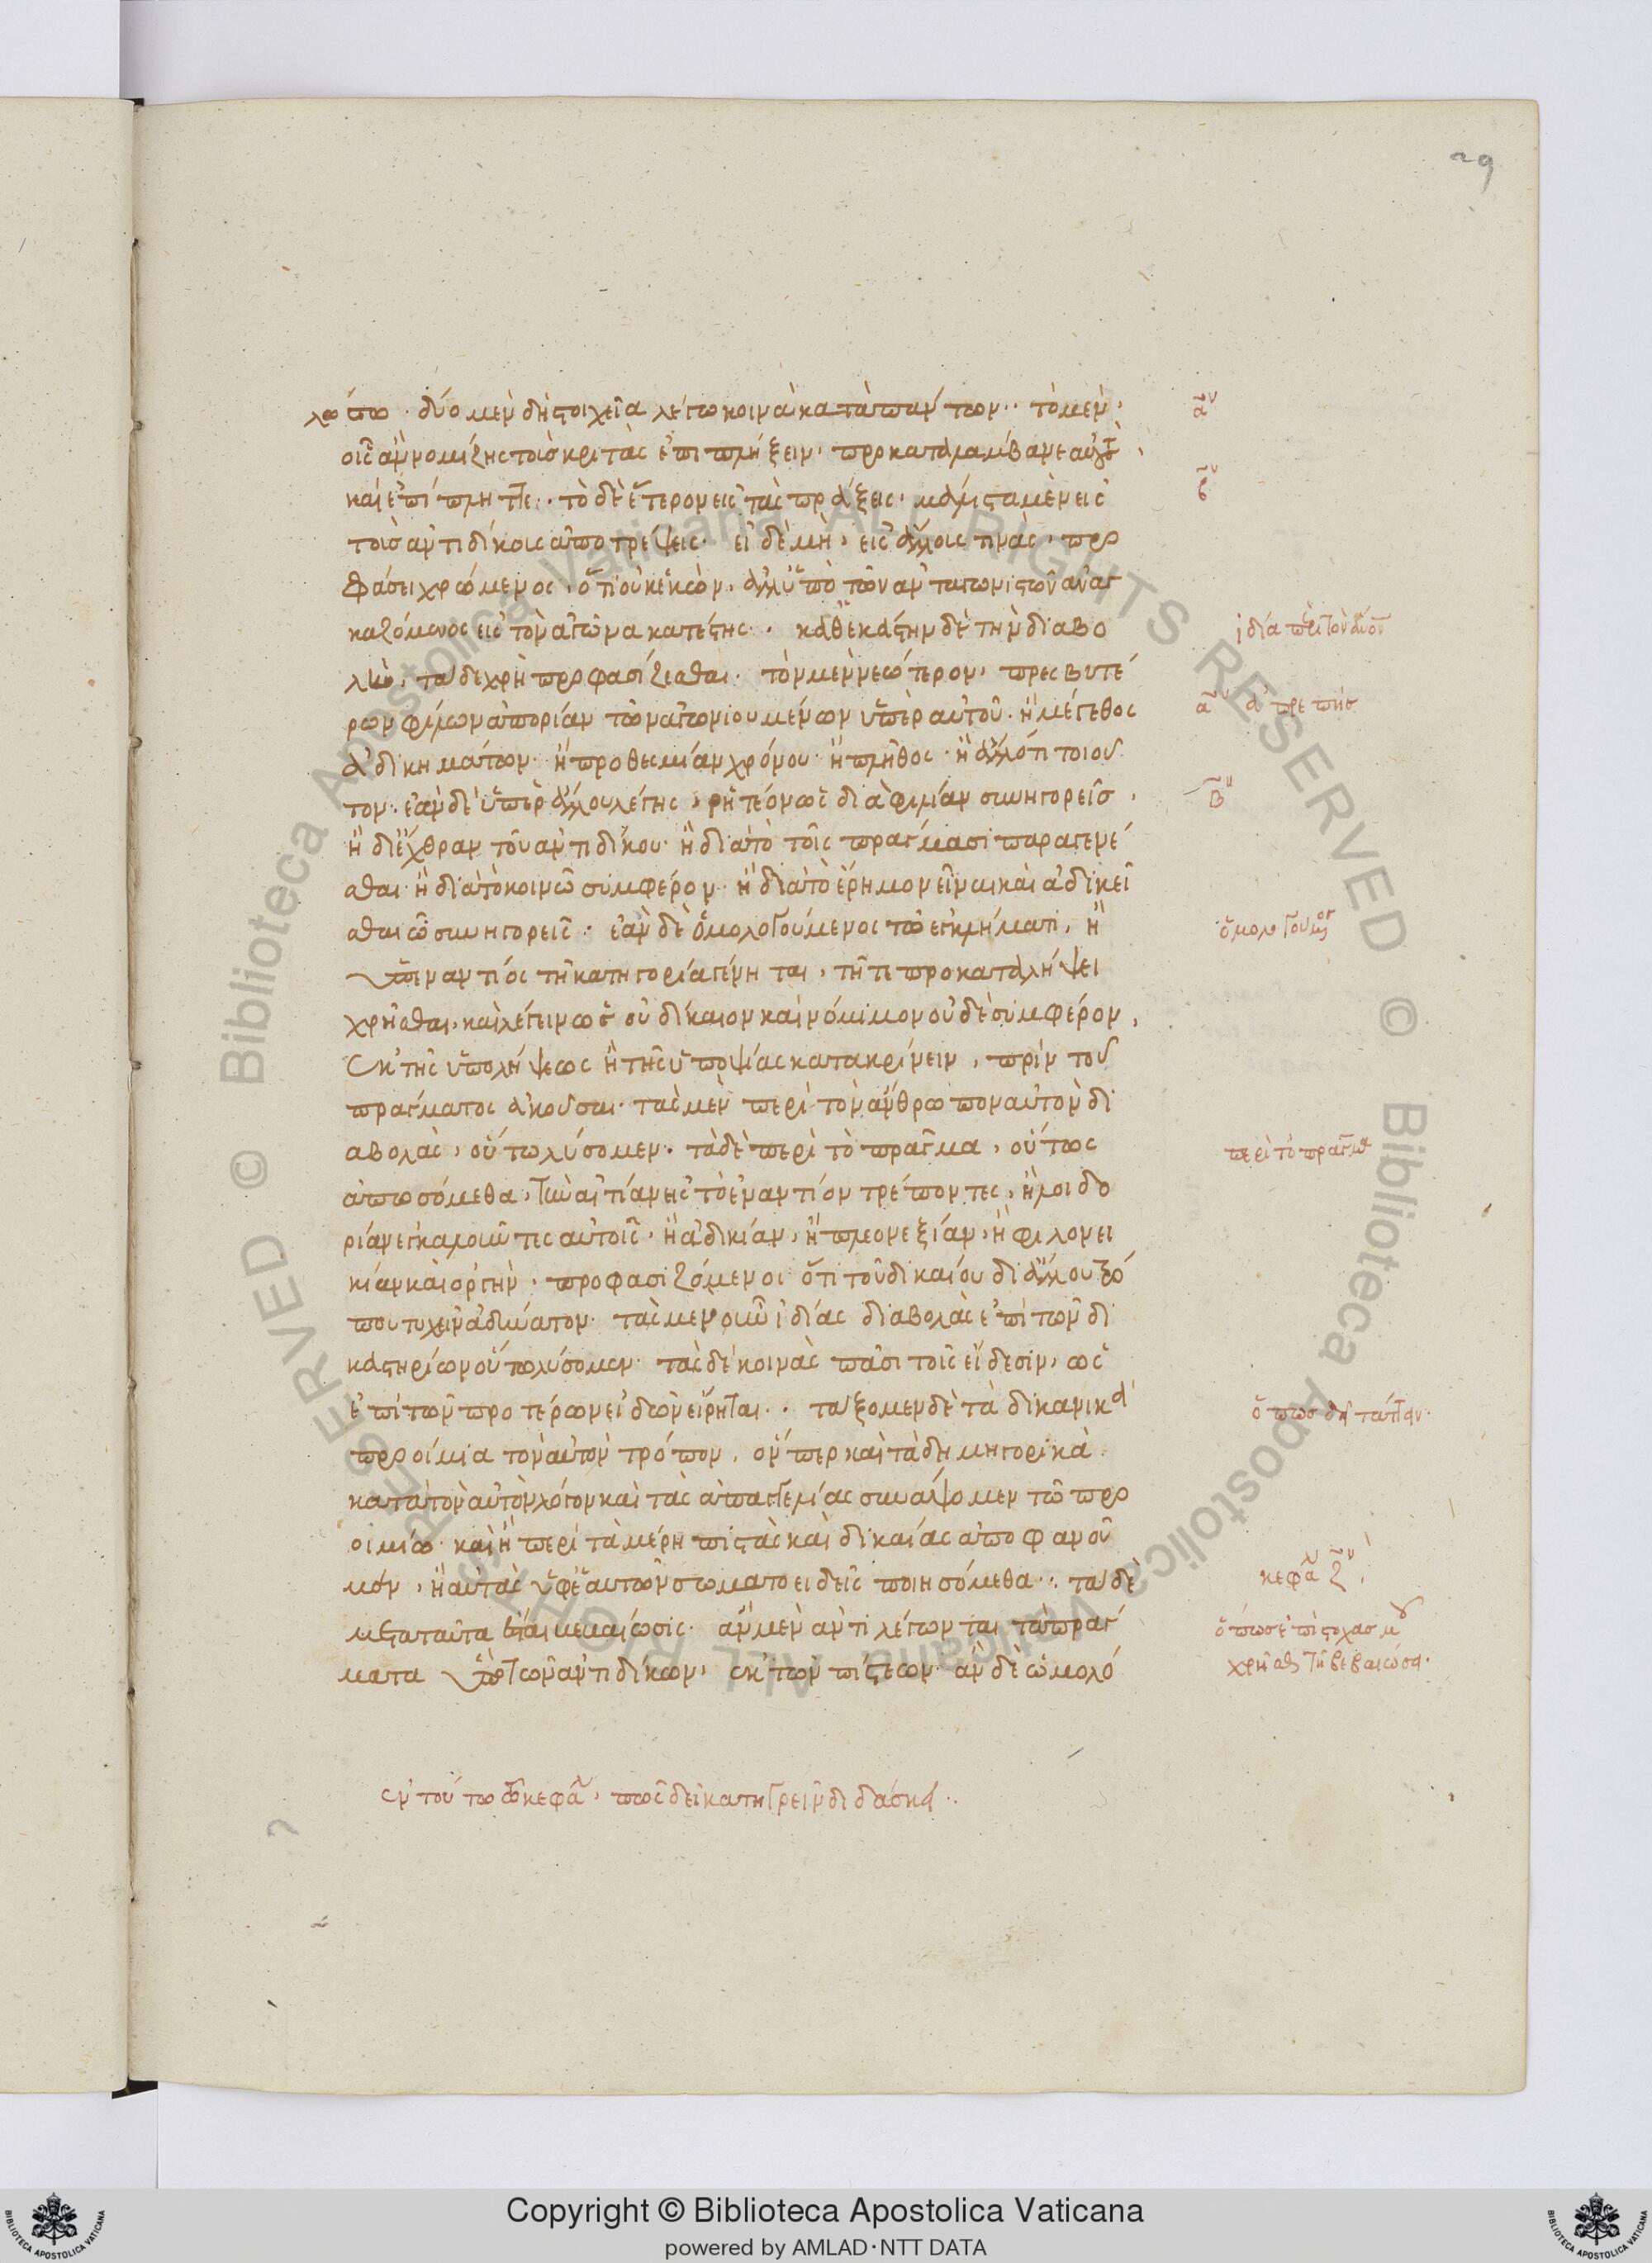 29
λοίπω. δύο μὲν δὴ στοιχεῖα λέγω κοινὰ κατὰ πάντων·· τὸ μὲν,
οἷς ἂν νομίζης τοὺς κριτὰς ἐπιπλήξειν, προκαταλάμβανε αὐτοὺς,
καὶ ἐπίπληττε·· τὸ δὲ ἕτερον εἰς τὰς πράξεις, μάλιστα μὲν εἰς
τοὺς ἀντιδίκους ἀποτρέψεις. εἰ δὲ μὴ, εἰς ἄλλους τινὰς, προ
φάσει χρώμενος, ὅτι οὐκ ἑκὼν, ἀλλ' ὑπὸ τῶν ἀνταγωνιστῶν ἀναγ
καζόμενος εἰς τὸν ἀγῶνα κατέστης·. καθ' ἑκάστην δὲ τὴν διαβο
λὴν, τάδε χρὴ προφασίζεσθαι. τὸν μὲν νεώτερον, πρεσβυτέ
ρων φίλων ἀπορίαν τῶν ἀγωνιουμένων ὑπὲρ αὐτοῦ. ἢ μέγεθος
ἀδικημάτων. ἢ προθεσμίαν χρόνου. ἢ πλῆθος. ἢ ἄλλό τι τοιοῦ
τον. ἐὰν δὲ ὑπὲρ ἄλλου λέγης, ῥητέον ὡς διὰ φιλίαν συνηγορεῖς,
ἢ δι' ἔχθραν τοῦ ἀντιδίκου. ἢ διὰ τὸ τοῖς πράγμασι παραγενέ
σθαι. ἢ διὰ τὸ κοινῶ συμφέρον. ἢ διὰ τὸ ἔρημον εἶναι καὶ ἀδικεῖ
σθαι ὧ συνηγορεῖς. ἐὰν δὲ ὁμολογούμενος τῶ ἐγκλήματι, ἢ
ὑπεναντίος τῆ κατηγορία γένηται, τῆ τε προκαταλήψει
χρῆσθαι, καὶ λέγειν ὡς οὐ δίκαιον καὶ νόμιμον οὐδὲ συμφέρον,
ἐκ τῆς ὑπολήψεως ἢ τῆς ὑποψίας κατακρίνειν, πρὶν τοῦ
πράγματος ἀκοῦσαι. τὰς μὲν περὶ τὸν ἄνθρωπον αὐτὸν δι
αβολὰς, οὕτω λύσομεν. τὰ δὲ περὶ τὸ πρᾶγμα, οὕτως
ἀπωσόμεθα, τὴν αἰτίαν εἰς τὸ ἐναντίον τρέποντες, ἢ λοιδο
ρίαν ἐγκαλοῦντες αὐτοῖς, ἢ ἀδικίαν, ἢ πλεονεξίαν, ἢ φιλονει
κίαν καὶ ὀργὴν, προφασιζόμενοι ὅτι τοῦ δικαίου δι' ἄλλου τρό
που τυχεῖν ἀδύνατον. τὰς μὲν οὖν ἰδίας διαβολὰς ἐπὶ τῶν δι
καστηρίων οὕτω λύσομεν. τὰς δὲ κοινὰς πᾶσι τοῖς εἴδεσιν, ὡς
ἐπὶ τῶν προτέρων εἰδῶν εἴρηται·. τάξομεν δὲ τὰ δικανικὰ
προοίμια τὸν αὐτὸν τρόπον, ὅνπερ καὶ τὰ δημηγορικὰ.
κατὰ τὸν αὐτὸν λόγον καὶ τὰς ἀπαγγελίας συνάψομεν τῶ προ
οιμίω. καὶ ἢ περὶ τὰ μέρη πιστὰς καὶ δικαίας ἀποφανοῦ
μεν, ἢ αὐτὰς ὑφ' ἑαυτῶν σωματοειδεῖς ποιησόμεθα·. τὰ δὲ
μετὰ ταῦτα ἔσται βεβαίωσις. ἂν μὲν ἀντιλέγωνται τὰ πράγ
ματα ὑπὸ τῶν ἀντιδίκων, ἐκ τῶν πίστεων. ἂν δὲ ὡμολό
αον
βον
ἰδία περὶ τὸν ἄνον
αον ἀπρεπὴς
βον
ὁμολογούμενος
περὶ τὸ πρᾶγμα
ὅπως δεῖ τάττειν.
κεφάλ ζον
ὅπως ἐπὶ στοχασμοῦ
χρῆσθαι τῆ βεβαιώσει.
ἐν τούτω τῶ κεφαλ, πῶς δεῖ κατηγορεῖν διδάσκει··
Copyright © Biblioteca Apostolica Vaticana
powered by AMLAD·NTT DATA